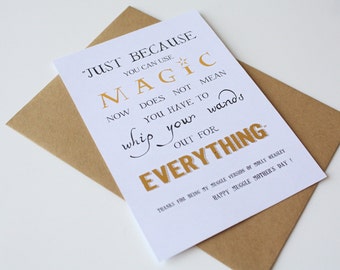 "JUST BECAUSE
YOU CAN USE
MAGIC
NOW DOES NOT MEAN
YOU HAVE TO
whip your wands
OUT FOR
EVERYTHING"
THANKS FOR BEING MY MUGGLE VERSION OF MOLLY WEASLEY
HAPPY MUGGLE MOTHER'S DAY!